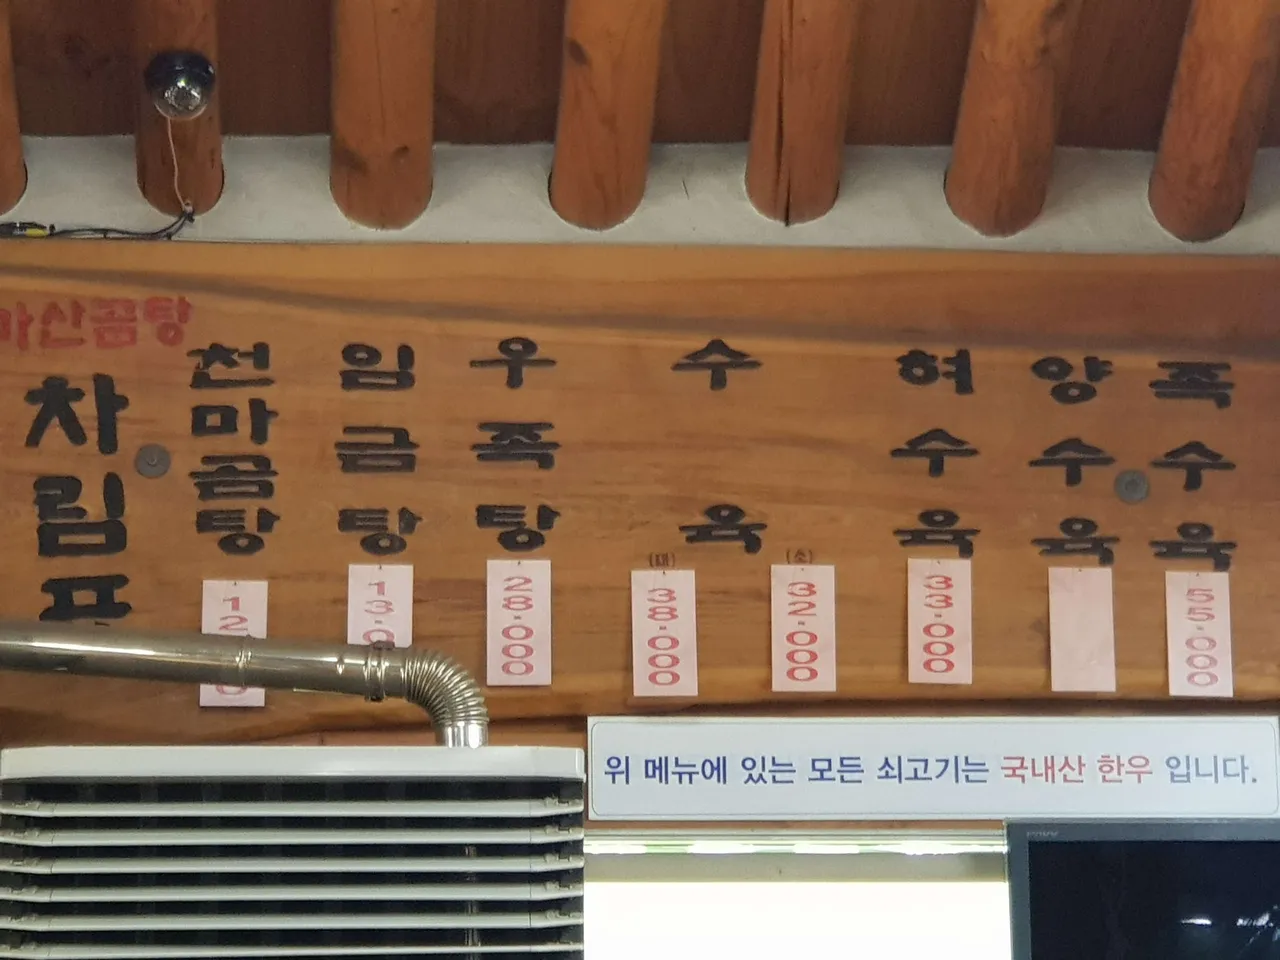 마산곰탕
차림표
천마곰탕
임금탕
28.000
우족탕
수육
(대)
38.000
(소)
32.000
혀수육
33.000
양수육
족수육
55.000
위 메뉴에 있는 모든 쇠고기는 국내산 한우 입니다.